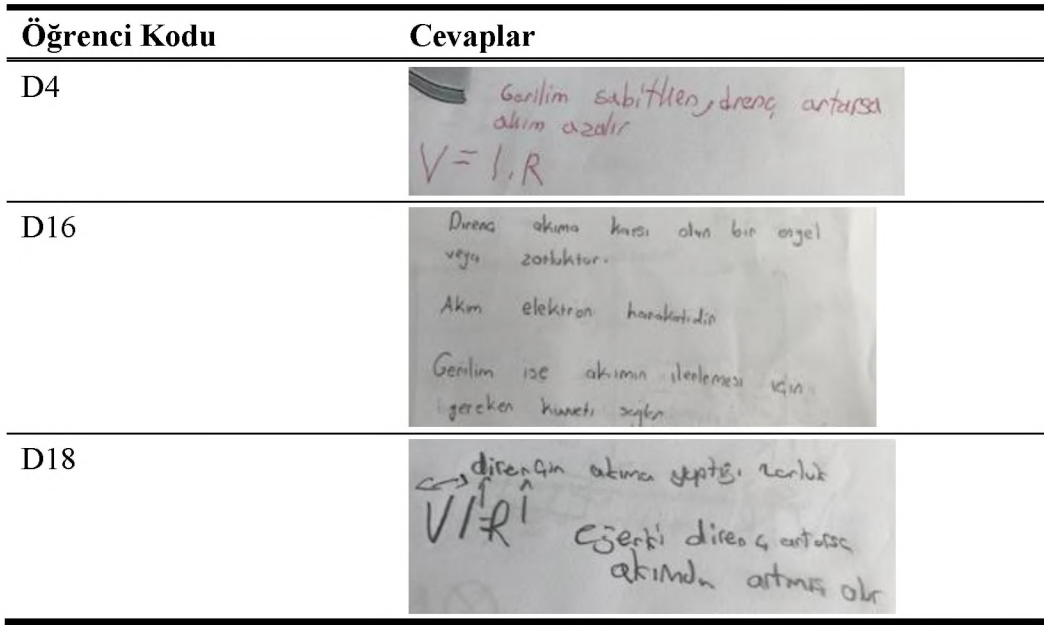 Öğrenci Kodu Cevaplar
D4
Gerilim sabitken, drenç artarsa
akım azalır
V = I.R
D16
Direnç akıma karşı olan bir engel
veya zorluktur.
Akım elektron harakatidir
Gerilim ise akımın ilerlemesi için
gereken kuvveti sağlar
D18
dirençin akıma yaptığı zorluk
eğerki direnç artarsa
akımda artmış olur